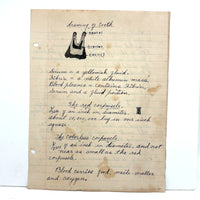 drawing of tooth
enamel
dentine
Serum = a yellowish fluid.
Fibrin = a white albumin mass.
Blood plasma = contains Fibrin,
Serum and a fluid portion.
The red corpuscle.
of an inch in diameter,
about 10,000,000 lay on one inch
square.
The colorless corpuscle.
of an inch in diameter, and not
near as small as the red
corpuscle.
Blood carries food, waste matter
and oxygen.